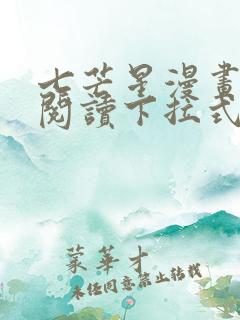 七芒星漫畫
閱讀下拉式
蒙華才
未經同意禁止轉載